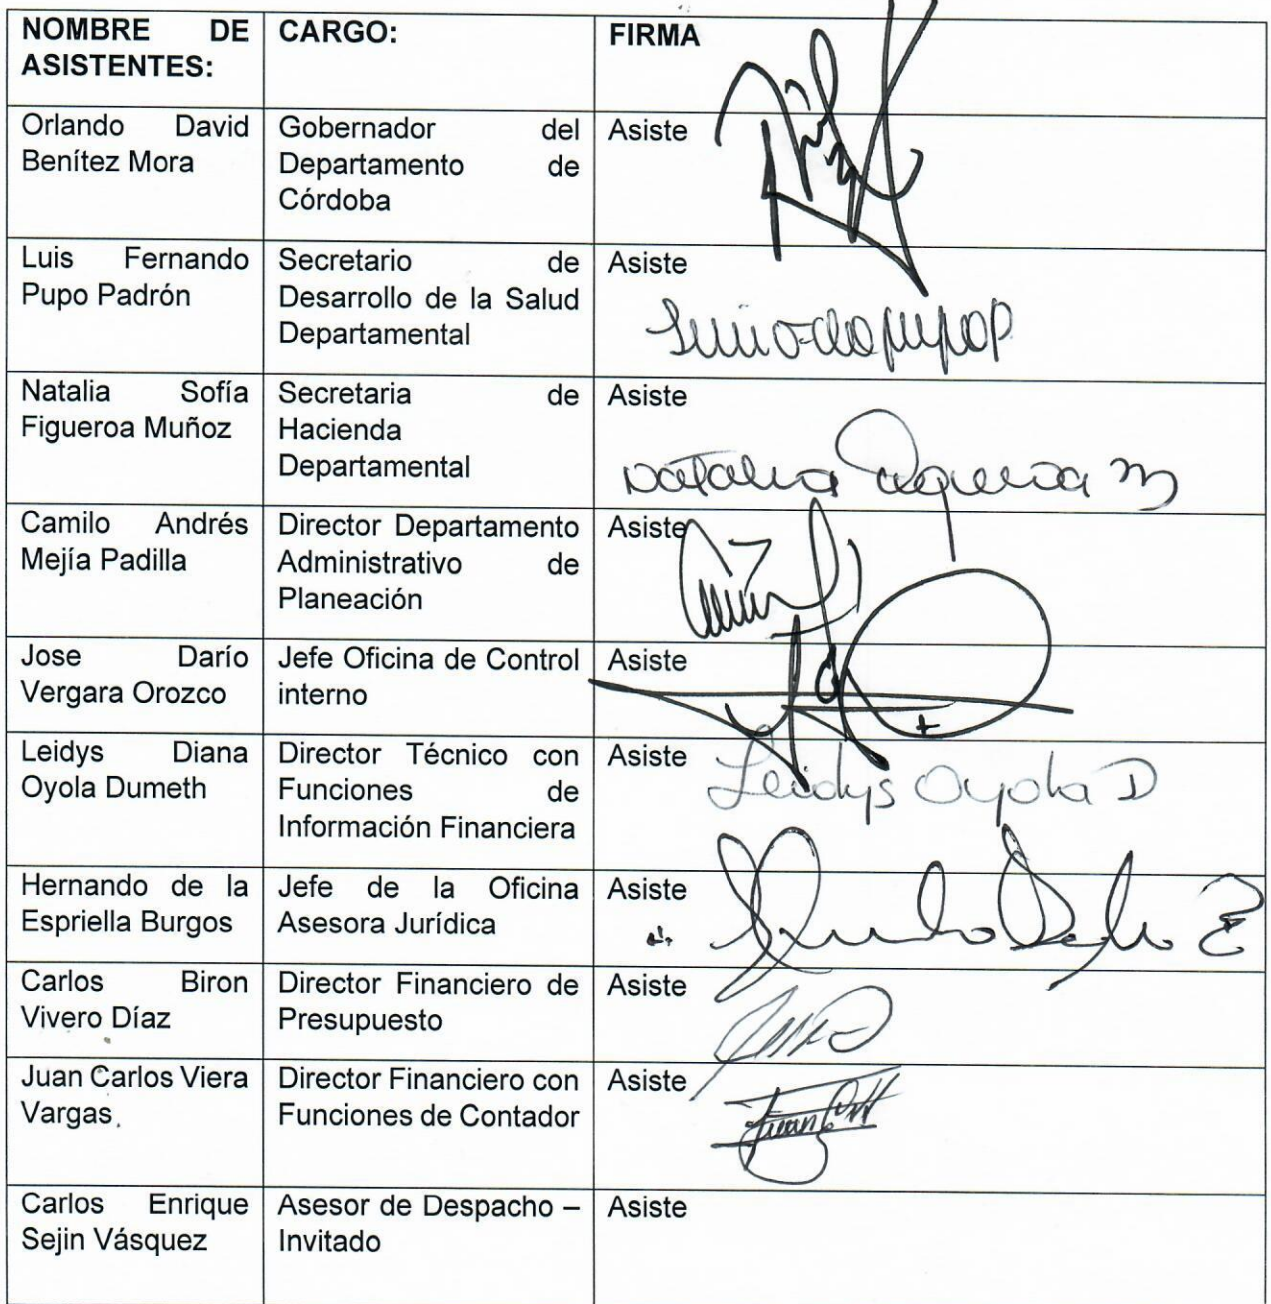 NOMBRE DE
ASISTENTES:
CARGO:
FIRMA
Orlando David
Benítez Mora
Gobernador del
Departamento de
Córdoba
Asiste
Luis Fernando
Pupo Padrón
Secretario de
Desarrollo de la Salud
Departamental
Asiste
Natalia Sofía
Figueroa Muñoz
Secretaria de
Hacienda
Departamental
Asiste
Natalia Figueroa M
Camilo Andrés
Mejía Padilla
Director Departamento
Administrativo de
Planeación
Asiste
Jose Darío
Vergara Orozco
Jefe Oficina de Control
interno
Asiste
Leidys Diana
Oyola Dumeth
Director Técnico con
Funciones de
Información Financiera
Asiste
Leidys Oyola D
Hernando de la
Espriella Burgos
Jefe de la Oficina
Asesora Jurídica
Asiste
Carlos Biron
Vivero Díaz
Director Financiero de
Presupuesto
Asiste
Juan Carlos Viera
Vargas
Director Financiero con
Funciones de Contador
Asiste
Carlos Enrique
Sejin Vásquez
Asesor de Despacho –
Invitado
Asiste